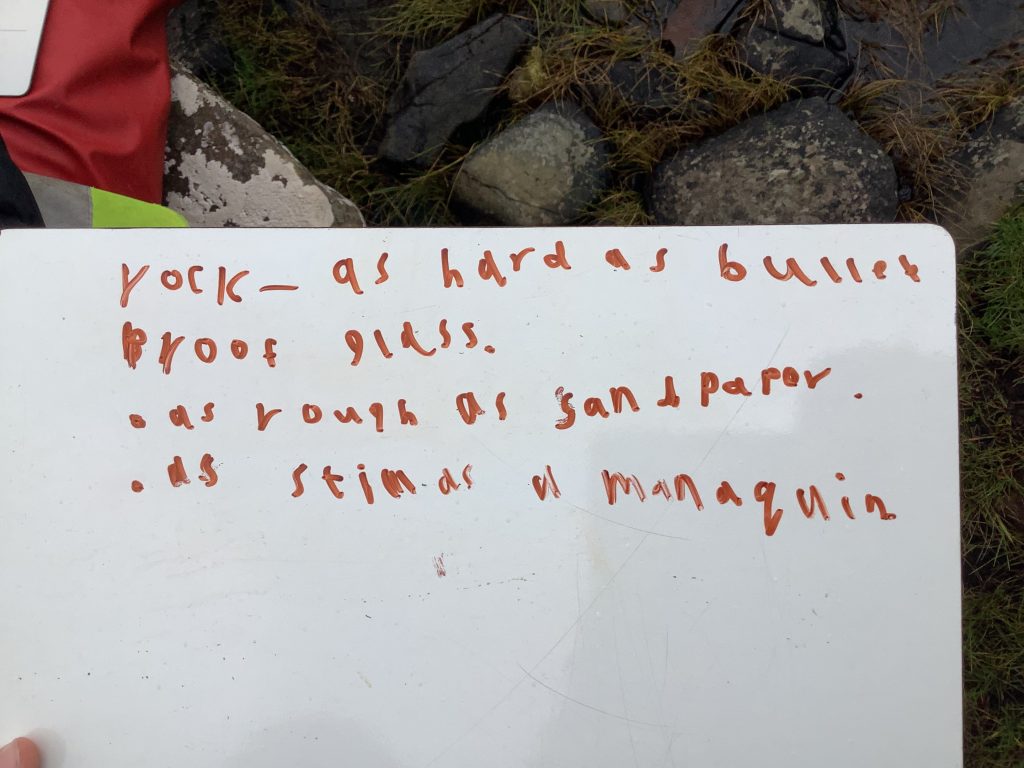 rock - as hard as bullet
proof glass.
. as rough as sandpaper.
. as stim as a manaquin